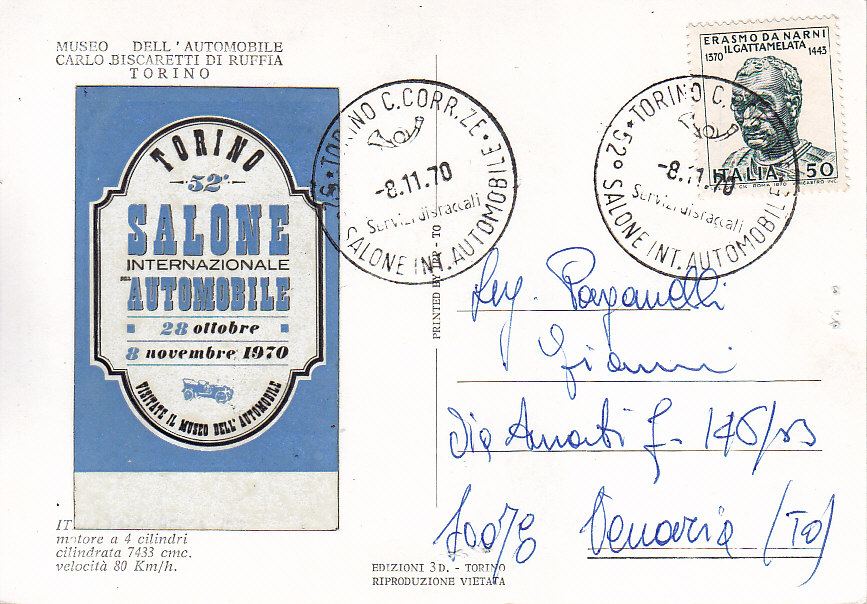 MUSEO DELL'AUTOMOBILE
CARLO BISCARETTI DI RUFFIA
TORINO
TORINO
52°
SALONE
INTERNAZIONALE
DEL
AUTOMOBILE
28 ottobre
8 novembre 1970
VISITATE IL MUSEO DELL'AUTOMOBILE
IT
motore a 4 cilindri
cilindrata 7433 cmc.
velocità 80 Km/h.
TORINO C.CORR.ZE
-8.11.70
Servizi distaccati
SALONE INT. AUTOMOBILE
PRINTED - TO
EDIZIONI 3 D. - TORINO
RIPRODUZIONE VIETATA
ERASMO DA NARNI
1370 IL GATTAMELATA 1443
ITALIA 50
TORINO C.
-8.11.70
Servizi distaccati
52° SALONE INT. AUTOMOBILE
Gianni
Via Amati 146/
10078 Venaria (To)